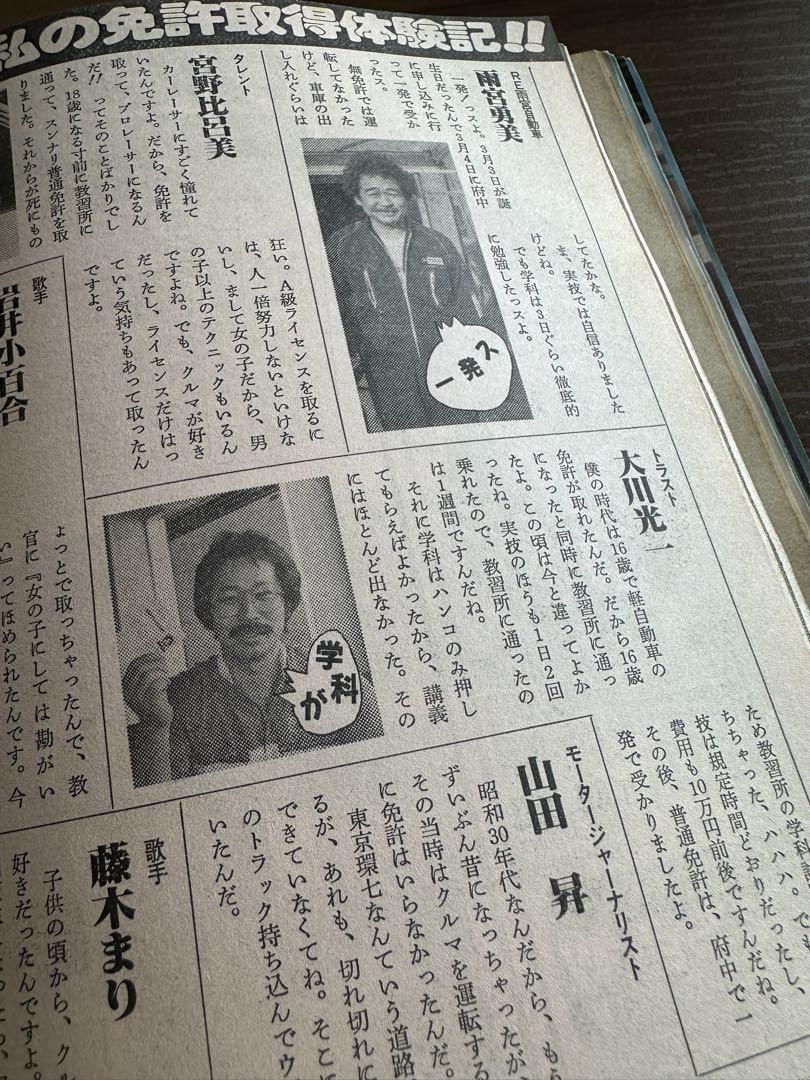 私の免許取得体験記!!
RE雨宮自動車
雨宮勇美
一発ノっスよ。3月3日が誕
生日だったんで3月4日に府中
に申し込みに行
って一発で受か
ったス。
無免許では運
転してなかった
けど、車庫の出
し入れぐらいは
してたかな。
ま、実技では自信ありました
けどね。
でも学科は3日ぐらい徹底的
に勉強したっスよ。
一発ス
タレント
宮野比呂美
カーレーサーにすごく憧れて
いたんですよ。だから、免許を
取って、プロレーサーになるん
だ!! ってそのことばかりでし
た。18歳になる寸前に教習所に
通って、スンナリ普通免許を取
りました。それからが死にもの
狂い。A級ライセンスを取るに
は、人一倍努力しないといけな
いし、まして女の子だから、男
の子以上のテクニックもいるん
ですよね。でも、クルマが好き
だったし、ライセンスだけはっ
ていう気持ちもあって取ったん
ですよ。
トラスト
大川光一
僕の時代は16歳で軽自動車の
免許が取れたんだ。だから16歳
になったと同時に教習所に通っ
たよ。この頃は今と違ってよか
ったね。実技のほうも1日2回
乗れたので、教習所に通ったの
は1週間ですんだね。
それに学科はハンコのみ押し
てもらえばよかったから、講義
にはほとんど出なかった。その
ため教習所の学科
ちちゃった、ハハハ。で
技は規定時間どおりだったし、
費用も10万円前後ですんだね。
その後、普通免許は、府中で一
発で受かりましたよ。
学科が
歌手
岩井小百合
ょっとで取っちゃったんで、教
官に『女の子にしては勘がい
い』ってほめられたんです。今
モータージャーナリスト
山田 昇
昭和30年代なんだから、もう
ずいぶん昔になっちゃったが、
その当時はクルマを運転する
に免許はいらなかったんだ。
東京環七なんていう道路
るが、あれも、切れ切れに
できていなくてね。そこに
のトラック持ち込んでウ
いたんだ。
歌手
藤木まり
子供の頃から、クル
好きだったんですよ。